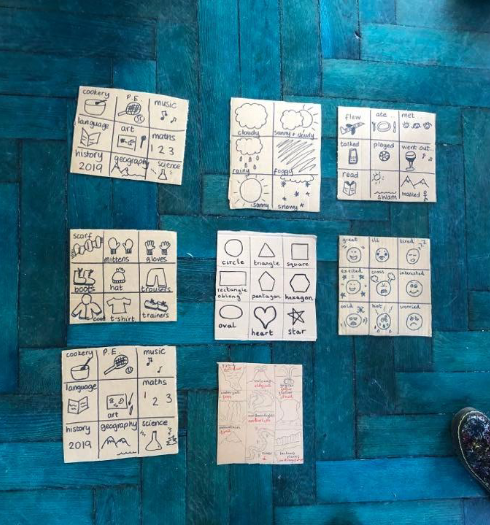 cookery P.E music
language art maths
1 2 3
history geography science
2019
cloudy sunny + cloudy
rainy foggy
sunny snowy
flew ate met
talked played went out
read swam hiked
scarf mittens gloves
boots hat trousers
coat t-shirt trainers
circle triangle square
rectangle pentagon hexagon
oblong
oval heart star
great ill tired
excited cross interested
cold hot worried
cookery P.E music
language art maths
1 2 3
history geography science
2019